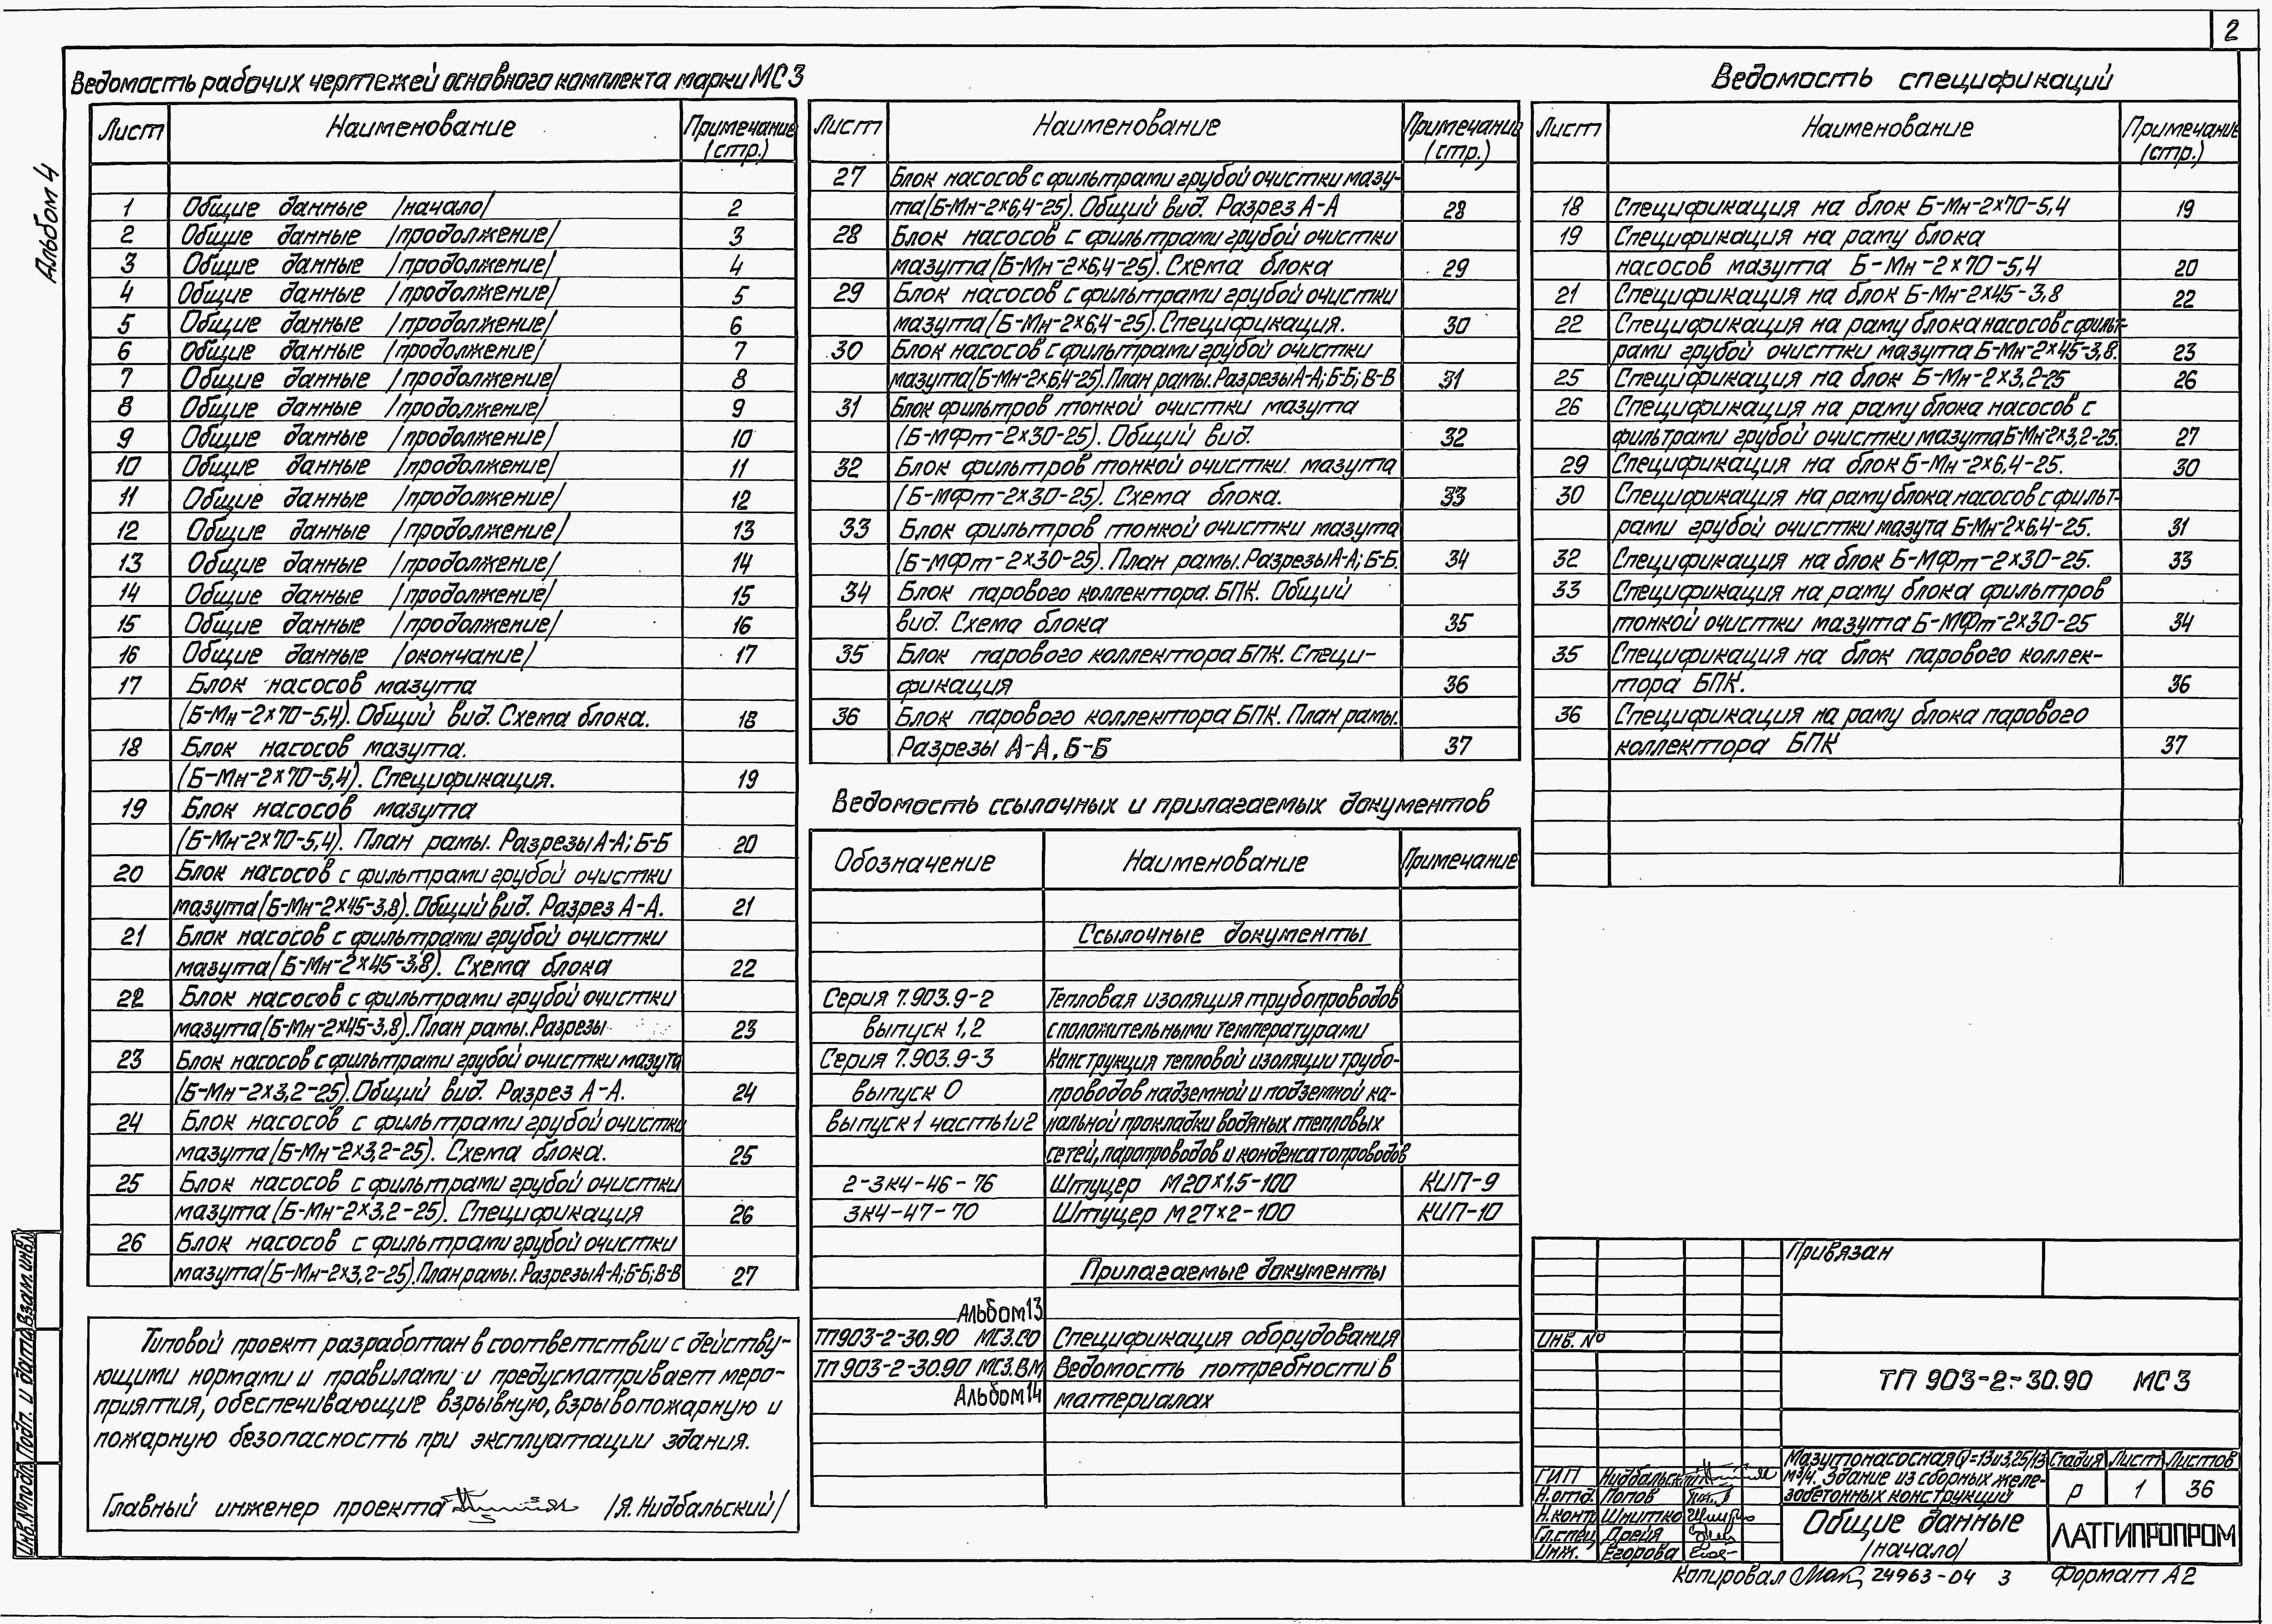 2
Альбом 4
Ведомость рабочих чертежей основного комплекта марки МС3
Лист Наименование Примечание (стр.)
1 Общие данные /начало/ 2
2 Общие данные /продолжение/ 3
3 Общие данные /продолжение/ 4
4 Общие данные /продолжение/ 5
5 Общие данные /продолжение/ 6
6 Общие данные /продолжение/ 7
7 Общие данные /продолжение/ 8
8 Общие данные /продолжение/ 9
9 Общие данные /продолжение/ 10
10 Общие данные /продолжение/ 11
11 Общие данные /продолжение/ 12
12 Общие данные /продолжение/ 13
13 Общие данные /продолжение/ 14
14 Общие данные /продолжение/ 15
15 Общие данные /продолжение/ 16
16 Общие данные /окончание/ 17
17 Блок насосов мазута
(Б-Мн-2×70-5,4). Общий вид. Схема блока. 18
18 Блок насосов мазута.
(Б-Мн-2×70-5,4). Спецификация. 19
19 Блок насосов мазута
(Б-Мн-2×70-5,4). План рамы. Разрезы А-А; Б-Б 20
20 Блок насосов с фильтрами грубой очистки
мазута (Б-Мн-2×45-3,8). Общий вид. Разрез А-А. 21
21 Блок насосов с фильтрами грубой очистки
мазута (Б-Мн-2×45-3,8). Схема блока 22
22 Блок насосов с фильтрами грубой очистки
мазута (Б-Мн-2×45-3,8). План рамы. Разрезы 23
23 Блок насосов с фильтрами грубой очистки мазута
(Б-Мн-2×3,2-25). Общий вид. Разрез А-А. 24
24 Блок насосов с фильтрами грубой очистки
мазута (Б-Мн-2×3,2-25). Схема блока. 25
25 Блок насосов с фильтрами грубой очистки
мазута (Б-Мн-2×3,2-25). Спецификация 26
26 Блок насосов с фильтрами грубой очистки
мазута (Б-Мн-2×3,2-25). План рамы. Разрезы А-А; Б-Б; В-В 27
Типовой проект разработан в соответствии с действу-
ющими нормами и правилами и предусматривает меро-
приятия, обеспечивающие взрывную, взрывопожарную и
пожарную безопасность при эксплуатации здания.
Главный инженер проекта /Я. Нидбальский/
Лист Наименование Примечание (стр.)
27 Блок насосов с фильтрами грубой очистки мазу-
та (Б-Мн-2×6,4-25). Общий вид. Разрез А-А 28
28 Блок насосов с фильтрами грубой очистки
мазута (Б-Мн-2×6,4-25). Схема блока 29
29 Блок насосов с фильтрами грубой очистки
мазута (Б-Мн-2×6,4-25). Спецификация. 30
30 Блок насосов с фильтрами грубой очистки
мазута (Б-Мн-2×6,4-25). План рамы. Разрезы А-А; Б-Б; В-В 31
31 Блок фильтров тонкой очистки мазута
(Б-МФт-2×30-25). Общий вид. 32
32 Блок фильтров тонкой очистки. мазута
(Б-МФт-2×30-25). Схема блока. 33
33 Блок фильтров тонкой очистки мазута
(Б-МФт-2×30-25). План рамы. Разрезы А-А; Б-Б. 34
34 Блок парового коллектора БПК. Общий
вид. Схема блока 35
35 Блок парового коллектора БПК. Специ-
фикация 36
36 Блок парового коллектора БПК. План рамы.
Разрезы А-А, Б-Б 37
Ведомость ссылочных и прилагаемых документов
Обозначение Наименование Примечание
Ссылочные документы
Серия 7.903.9-2 Тепловая изоляция трубопроводов
выпуск 1,2 с положительными температурами
Серия 7.903.9-3 Конструкция тепловой изоляции трубо-
выпуск 0 проводов надземной и подземной ка-
выпуск 1 часть 1и2 нальной прокладки водяных тепловых
сетей, паропроводов и конденсатопроводов
2-3К4-46-76 Штуцер М20×1,5-100 КИП-9
3К4-47-70 Штуцер М27×2-100 КИП-10
Прилагаемые документы
Альбом 13
ТП903-2-30.90 МС3.СО Спецификация оборудования
ТП 903-2-30.90 МС3.ВМ Ведомость потребности в
Альбом 14 материалах
Ведомость спецификаций
Лист Наименование Примечание (стр.)
18 Спецификация на блок Б-Мн-2×70-5,4 19
19 Спецификация на раму блока
насосов мазута Б-Мн-2×70-5,4 20
21 Спецификация на блок Б-Мн-2×45-3,8 22
22 Спецификация на раму блока насосов с фильт-
рами грубой очистки мазута Б-Мн-2×45-3,8. 23
25 Спецификация на блок Б-Мн-2×3,2-25 26
26 Спецификация на раму блока насосов с
фильтрами грубой очистки мазута Б-Мн-2×3,2-25. 27
29 Спецификация на блок Б-Мн-2×6,4-25. 30
30 Спецификация на раму блока насосов с фильт-
рами грубой очистки мазута Б-Мн-2×6,4-25. 31
32 Спецификация на блок Б-МФт-2×30-25. 33
33 Спецификация на раму блока фильтров
тонкой очистки мазута Б-МФт-2×30-25 34
35 Спецификация на блок парового коллек-
тора БПК. 36
36 Спецификация на раму блока парового
коллектора БПК 37
Привязан
Инв. №
ТП 903-2-30.90 МС3
Мазутонасосная Q=13и3,25/13
м³/ч. Здание из сборных желе-
зобетонных конструкций
Стадия Лист Листов
р 1 36
ГИП Нидбальский
Н.отд. Попов
Н.контр Шнитко
Гл.спец Дрейя
Инж. Егорова
Общие данные
/начало/
ЛАТГИПРОПРОМ
Копировал 24963-04 3 Формат А2
Инв.№подл. Подп. и дата Взам.инв.№